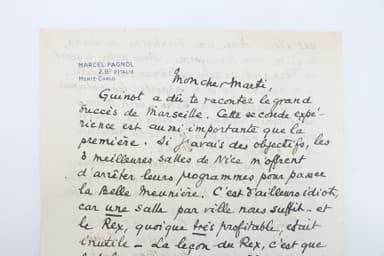 MARCEL PAGNOL
2. Bd D'ITALIE
MONTE CARLO
Mon cher Marti,
Guinot a dû te raconter le grand
succès de Marseille. Cette seconde expé-
rience est aussi importante que la
première. Si j'avais des objectifs, les
3 meilleures salles de Nice m'offrent
d'arrêter leurs programmes pour passer
la Belle Meunière. C'est d'ailleurs idiot,
car une salle par ville nous suffit - et
le Rex, quoique très profitable, était
inutile - La leçon du Rex, c'est que